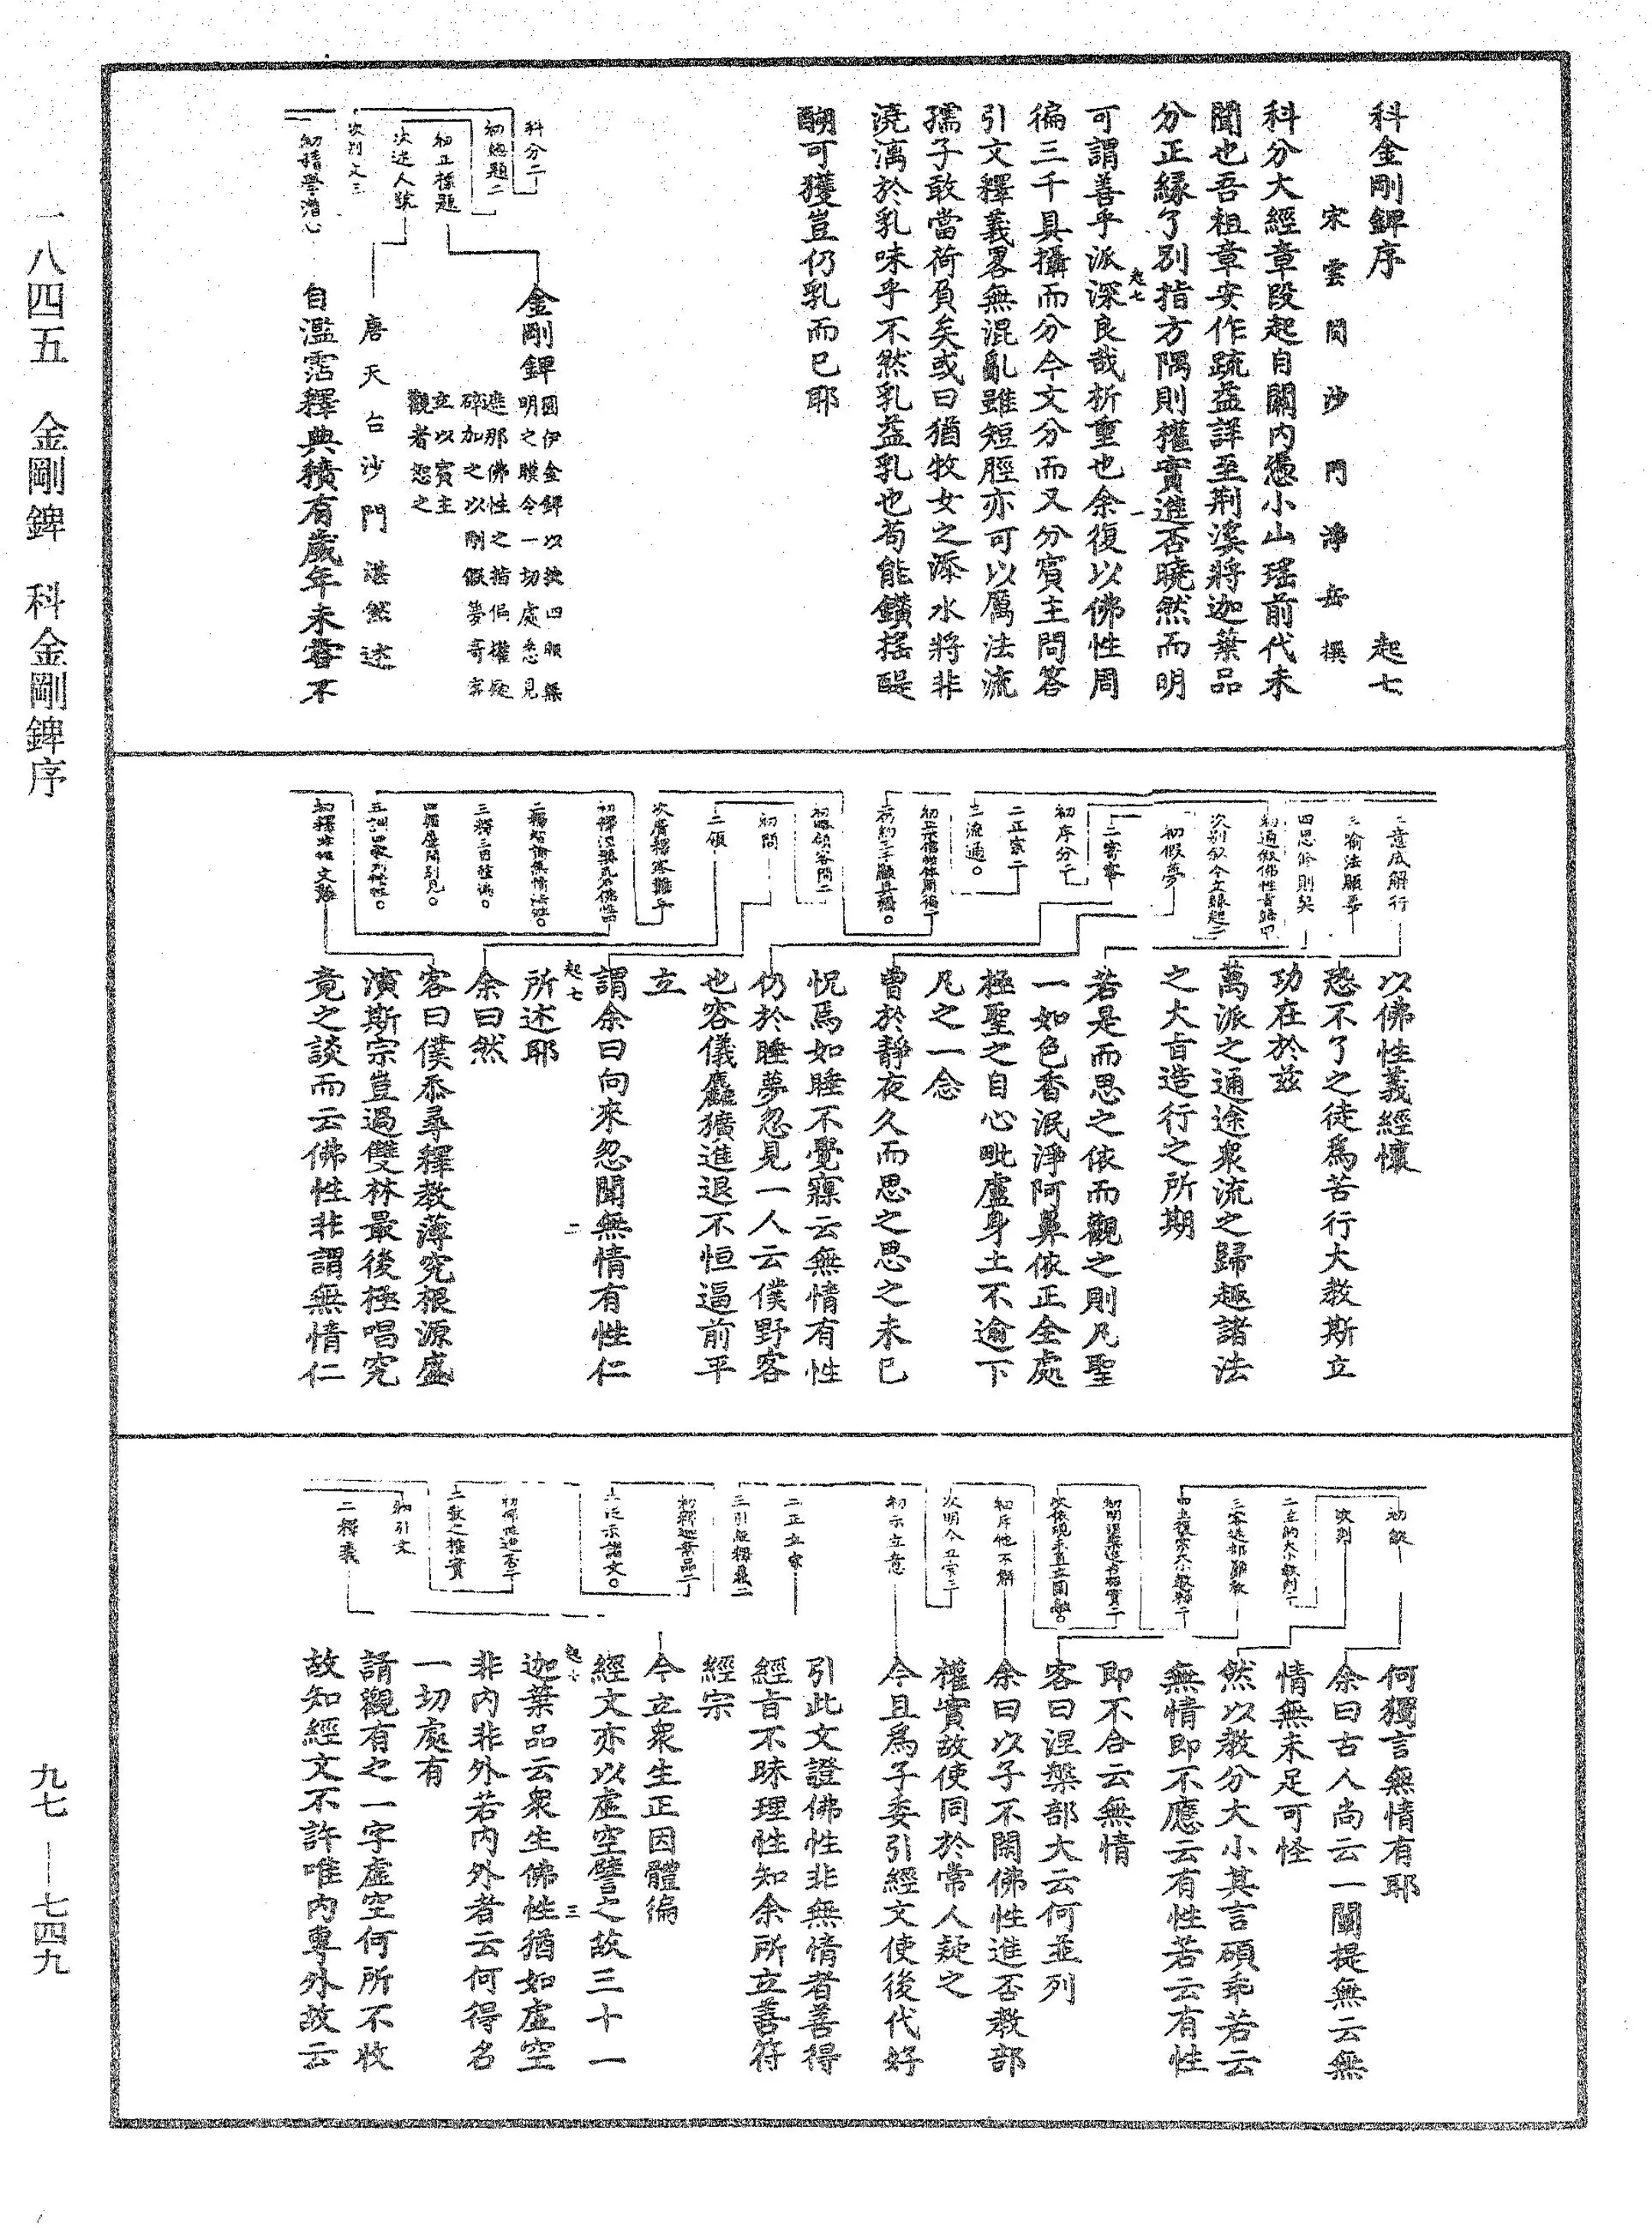 科金剛錍序　起七
宋雲間沙門淨岳撰
科分大經章段起自關內憑小山瑤前代未
聞也吾祖章安作䟽益詳至荆溪將迦葉品
分正緣了別指方隅則權實進否曉然而明
可謂善乎派深良哉析重也余復以佛性周
徧三千具攝而分今文分而又分賓主問答
引文釋義畧無混亂雖短脛亦可以厲法流
孺子敢當荷負矣或曰猶牧女之添水將非
澆漓於乳味乎不然乳益乳也苟能鑽搖醍
醐可獲豈仍乳而已耶
起七　一
科分二
初總題二
初正標題
金剛錍
圓伊金錍以抉四眼無
明之膜令一切處悉見
遮那佛性之指偏權疑
碎加之以剛假夢寄客
立以賓主
觀者恕之
次述人號
唐天台沙門湛然述
次別文三
自濫霑釋典積有歲年未嘗不
二意成解行
三喻法願要
四思修則契
初通敘佛性旨歸四
次別敘今立緣起二
初假夢
二寄客
初序分二
二正宗二
三流通。
初問
二領
次廣釋客難二
以佛性義經懷
恐不了之徒爲苦行大教斯立
功在於茲
萬派之通途衆流之歸趣諸法
之大旨造行之所期
若是而思之依而觀之則凡聖
一如色香泯淨阿鼻依正全處
極聖之自心毗盧身土不逾下
凡之一念
曽於靜夜久而思之思之未已
怳焉如睡不覺寱云無情有性
仍於睡夢忽見一人云僕野客
也容儀麤獷進退不恒逼前平
立
謂余曰向來忽聞無情有性仁
所述耶
余曰然
客曰僕忝尋釋教薄究根源盛
演斯宗豈過雙林最後極唱究
竟之談而云佛性非謂無情仁
起七　二
初敘
次判
三客迷部難教
初斥他不解
次明今立宗二
初示立意
二正立宗
三引經釋義二
初釋迦葉品二
二泛示諸文。
二教之權實
初引文
二釋義
何獨言無情有耶
余曰古人尚云一闡提無云無
情無未足可怪
然以教分大小其言碩乖若云
無情即不應云有性若云有性
即不合云無情
客曰涅槃部大云何並列
余曰以子不閑佛性進否教部
權實故使同於常人疑之
今且爲子委引經文使後代好
引此文證佛性非無情者善得
經旨不昧理性知余所立善符
經宗
今立衆生正因體徧
經文亦以虛空譬之故三十一
迦葉品云衆生佛性猶如虛空
非內非外若內外者云何得名
一切處有
請觀有之一字虛空何所不收
故知經文不許唯內專外故云
起七　三
一八四五　金剛錍　科金剛錍序
九七—七四九